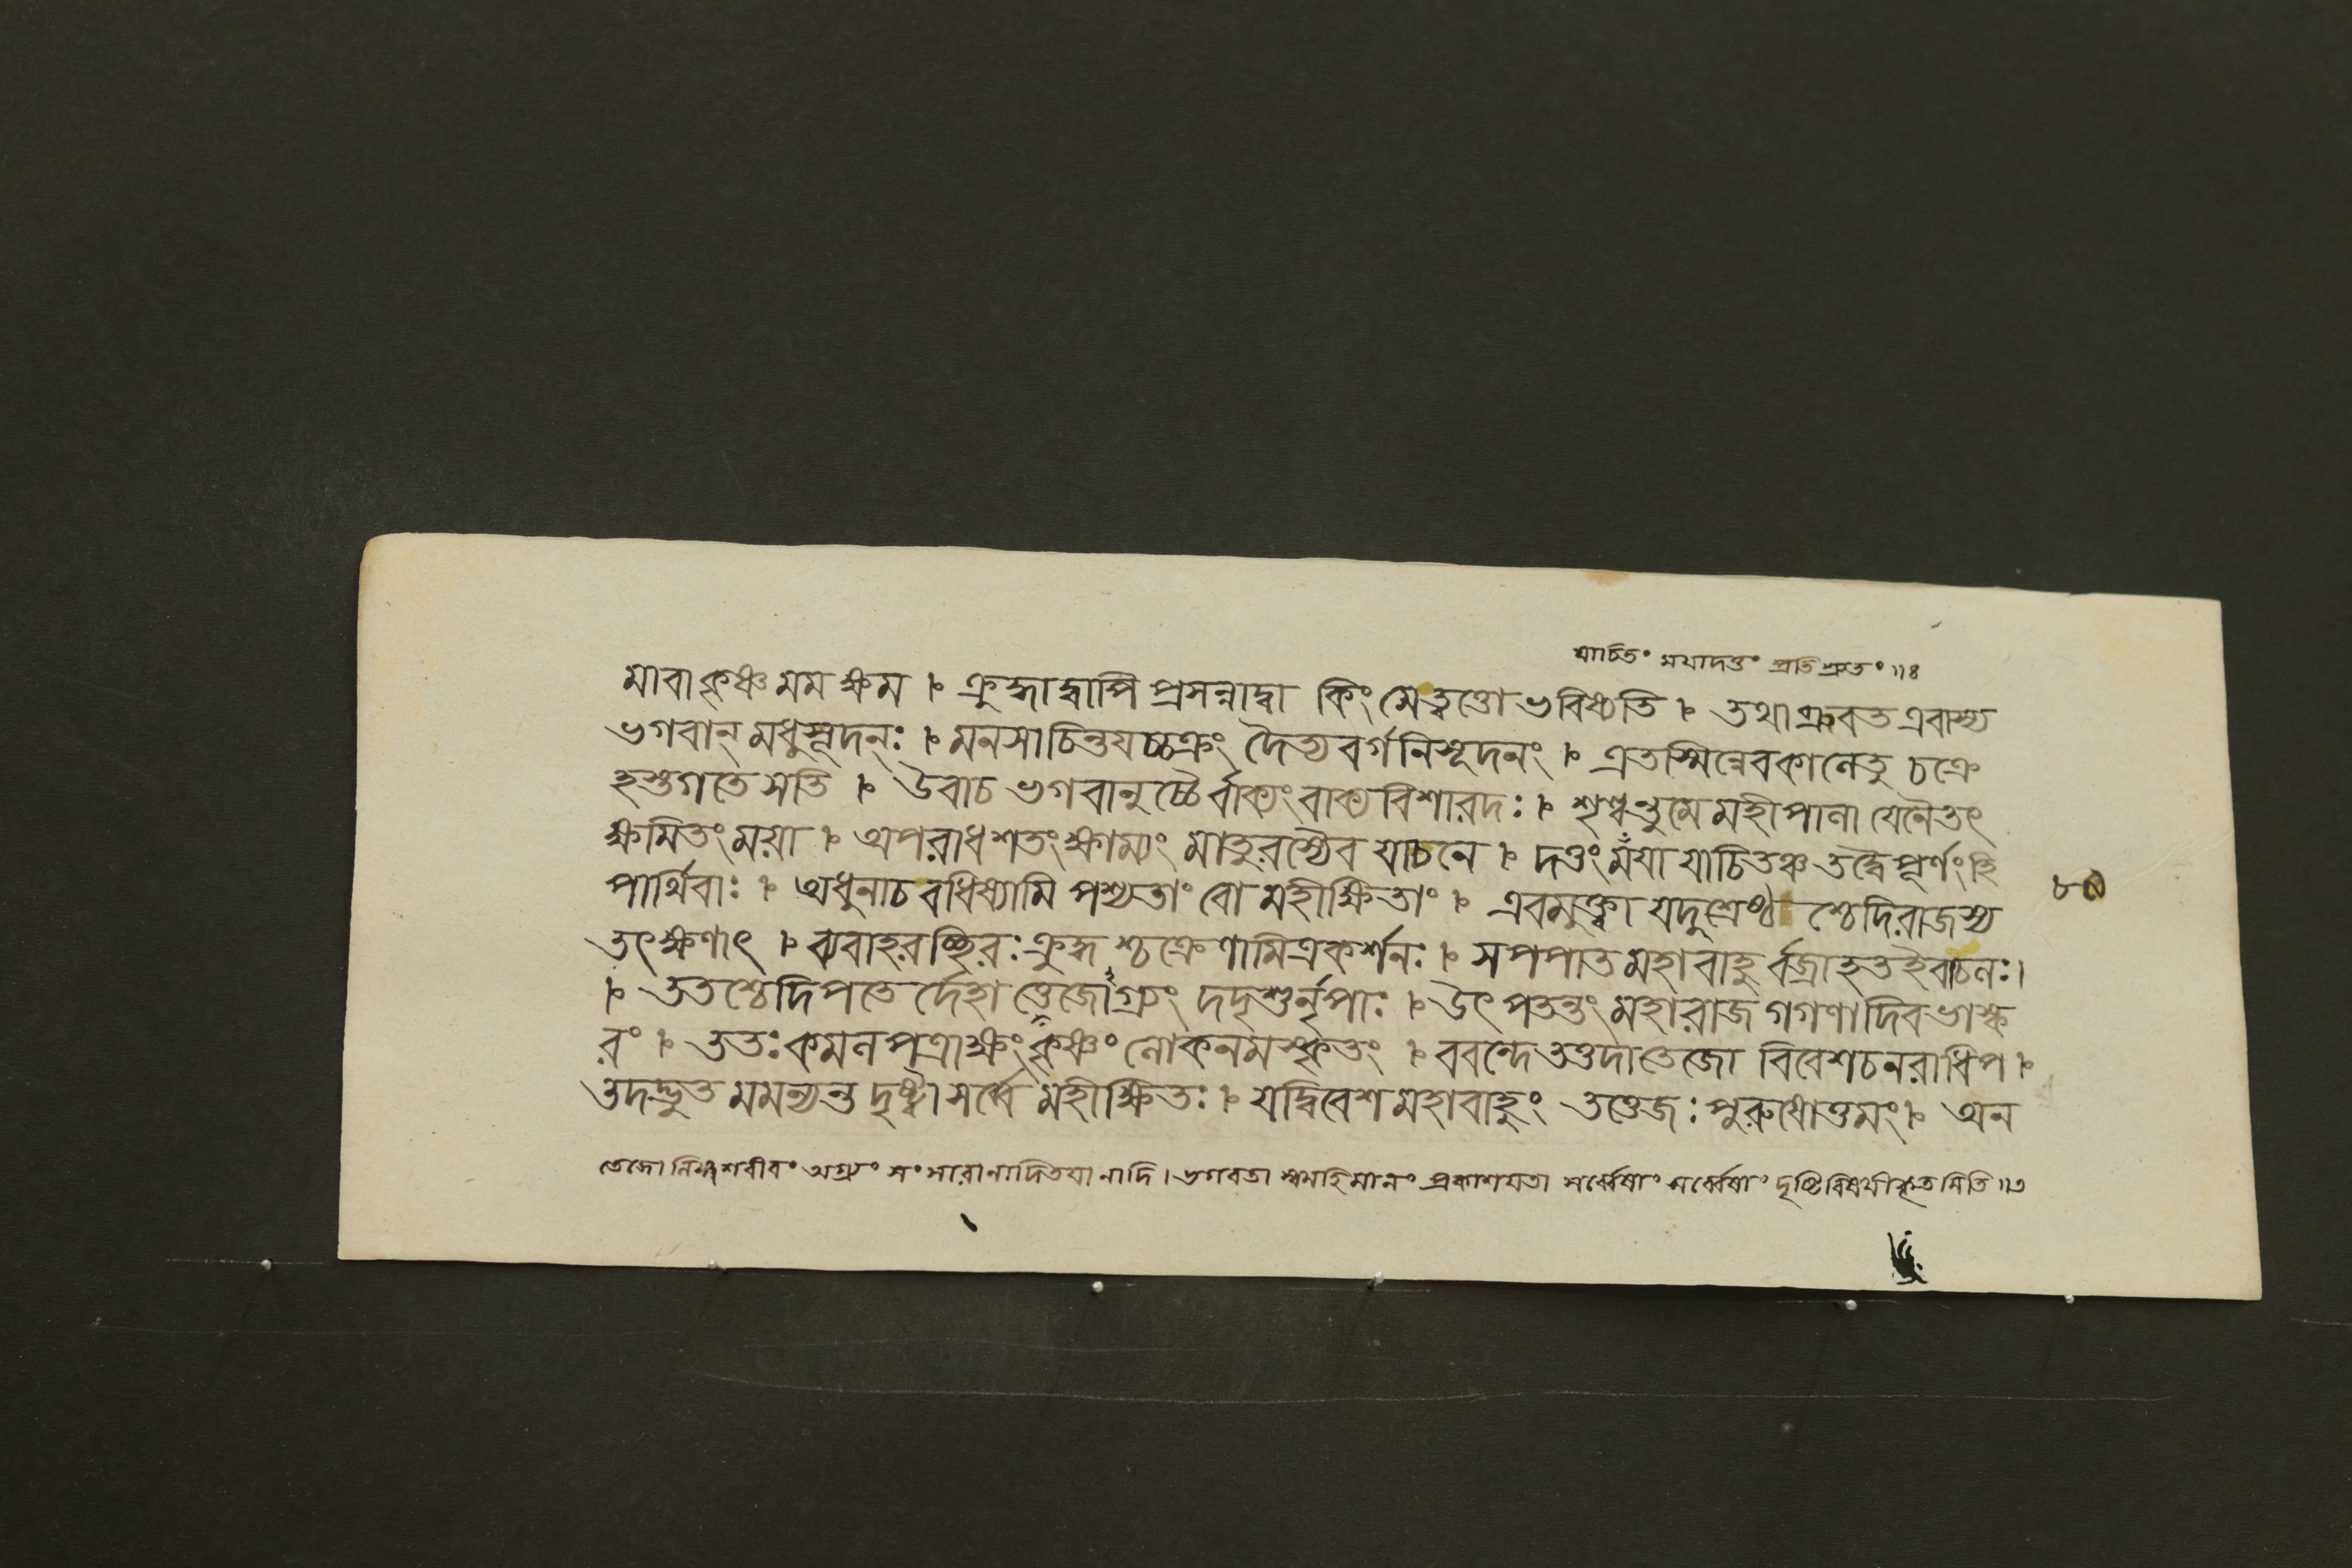 যাচিতং ময়াদত্তং প্রতিশ্রুতং ॥৪
মাবা কৃষ্ণ মম ক্ষম । ক্রুদ্ধাদ্বাপি প্রসন্নাদ্বা কিং মেত্বত্তো ভবিষ্যতি । তথা ব্রুবত এবাস্য
ভগবান্ মধুসূদনঃ । মনসাচিন্তযচ্চক্রং দৈত্যবর্গনিসূদনং । এতস্মিন্নেবকালেতু চক্রে
হস্তগতে সতি । উবাচ ভগবানুচ্চৈর্বাক্যং বাক্যবিশারদঃ । শৃণ্বন্তুমে মহীপালা যেনৈতৎ
ক্ষমিতং ময়া । অপরাধশতং ক্ষাম্যং মাতুরস্যৈব যাচনে । দত্তং ময়া যাচিতঞ্চ তদ্বৈ পূর্ণং হি
পার্থিবাঃ । অধুনাচ বধিষ্যামি পশ্যতাং বো মহীক্ষিতাং । এবমুক্ত্বা যদুশ্রেষ্ঠ শ্চেদিরাজস্য
তৎক্ষণাৎ । ব্যবাহরচ্ছিরঃ ক্রুদ্ধ শ্চক্রেণামিত্রকর্শনঃ । স পপাত মহাবাহু র্বজ্রাহত ইবাচলঃ ।
। ততশ্চেদিপতে র্দেহা ত্তেজোগ্র্যং দদৃশুর্নৃপাঃ । উৎপতন্তং মহারাজ গগণাদিব ভাস্ক
রং । ততঃ কমলপত্রাক্ষং কৃষ্ণং লোকনমস্কৃতং । ববন্দে তত্তদা তেজো বিবেশচ নরাধিপ ।
তদদ্ভুত মমন্যন্ত দৃষ্ট্বা সর্ব্বে মহীক্ষিতঃ । যদ্বিবেশ মহাবাহুং তত্তেজঃ পুরুষোত্তমং । অন
৮৯
তেজো লিঙ্গশরীরং অগ্র্যং ভগবতা স্বমহিমানং প্রকাশয়তা সর্ব্বেষাং দৃষ্টিবিষয়ীকৃতমিতি ॥৩